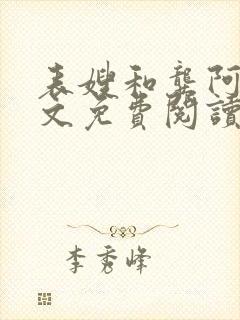 表嫂和龔阿
文免費閱讀
李秀峰